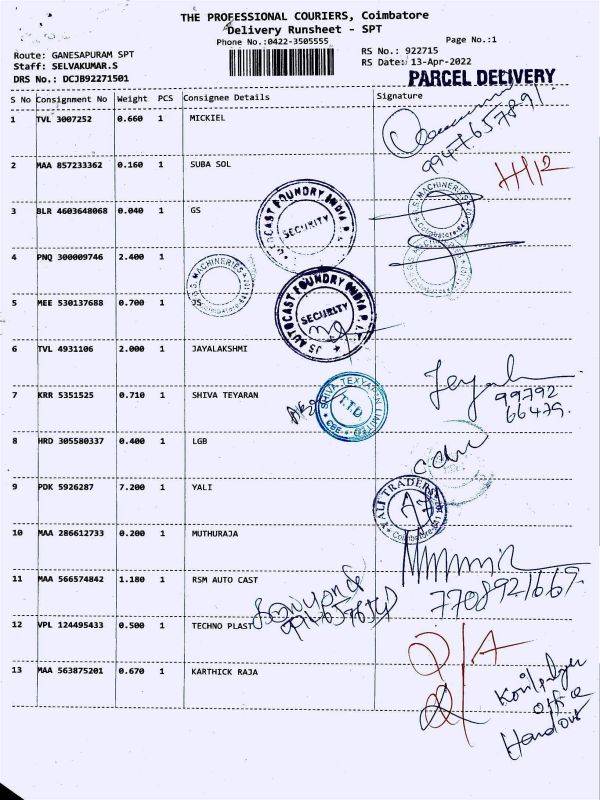 THE PROFESSIONAL COURIERS, Coimbatore
Delivery Runsheet - SPT
Phone No.:0422-3505555
Page No.:1
Route: GANESAPURAM SPT
RS No.: 922715
Staff: SELVAKUMAR.S
RS Date: 13-Apr-2022
DRS No.: DCJB92271501
PARCEL DELIVERY
S No Consignment No Weight PCS Consignee Details Signature
1 TVL 3007252 0.660 1 MICKIEL
9947657891
2 MAA 857233362 0.160 1 SUBA SOL
3 BLR 4603648068 0.040 1 GS
JS AUTOCAST FOUNDRY INDIA P
SECURITY
G.S. MACHINERIES
Coimbatore
4 PNQ 300009746 2.400 1
G.S. MACHINERIES
Coimbatore
5 MEE 530137688 0.700 1 JS
JS AUTOCAST FOUNDRY INDIA P. L
SECURITY
6 TVL 4931106 2.000 1 JAYALAKSHMI
7 KRR 5351525 0.710 1 SHIVA TEYARAN
SHIVA TEXYARN LIMITED
T.T.D
CBE
99792
66479.
8 HRD 305580337 0.400 1 LGB
9 PDK 5926287 7.200 1 YALI
YALI TRADERS
Coimbatore
10 MAA 286612733 0.200 1 MUTHURAJA
11 MAA 566574842 1.180 1 RSM AUTO CAST
7708921669.
12 VPL 124495433 0.500 1 TECHNO PLAST
13 MAA 563875201 0.670 1 KARTHICK RAJA
office
Handout